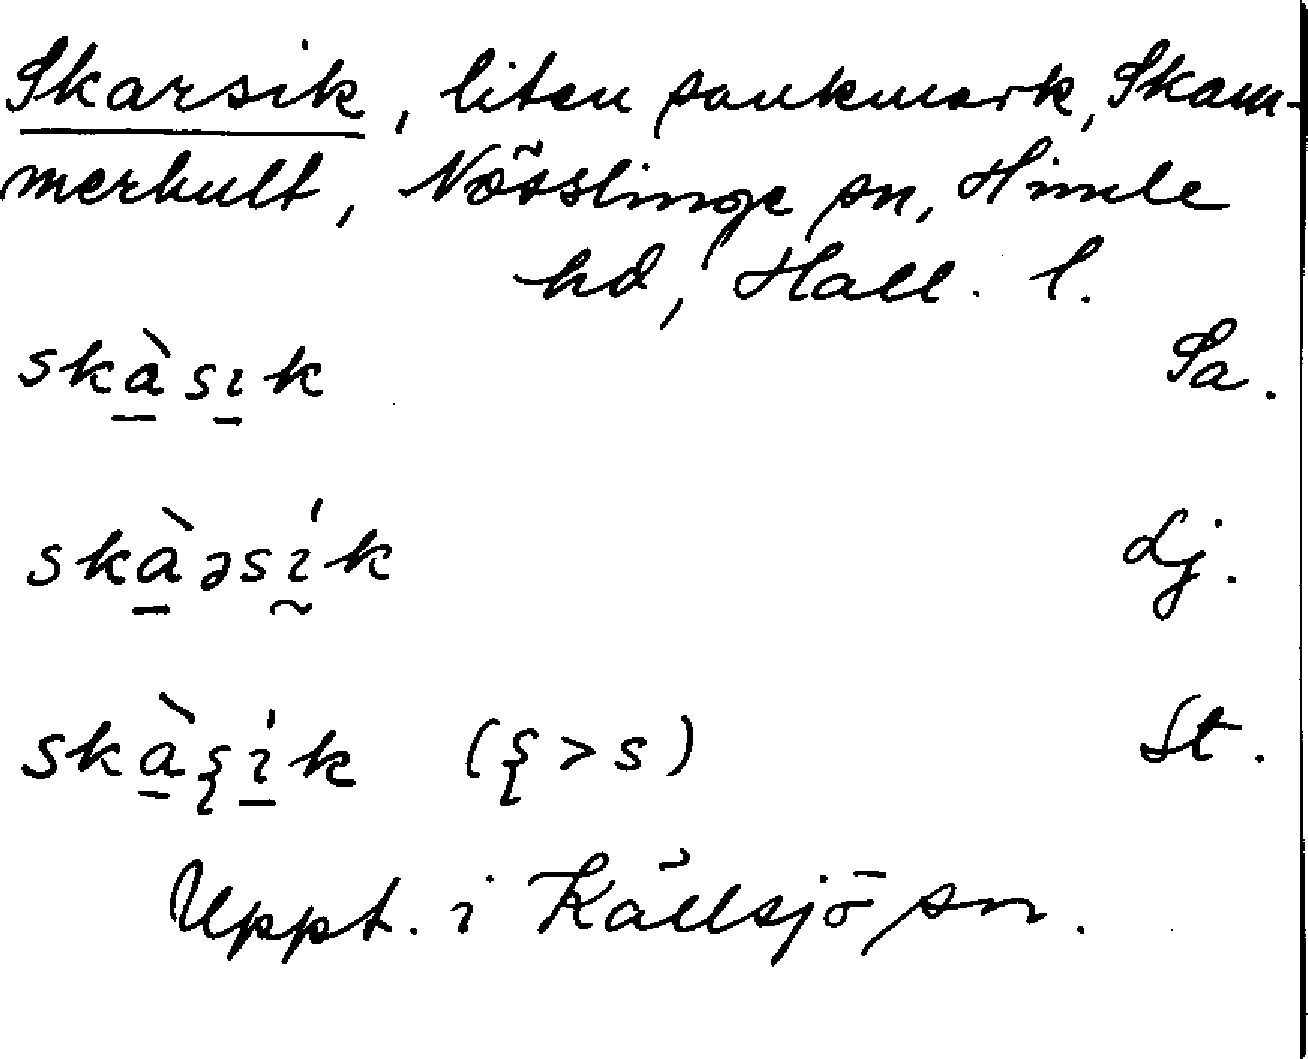 Skarsik, liten sankmark, Skam-
merhult, Nösslinge sn, Himle
hd, Hall. l.
skàsık Sa.
skàəsı̍k Lj.
skàʂı̍k (ʂ > s) St.
Uppt. i Källsjö sn.